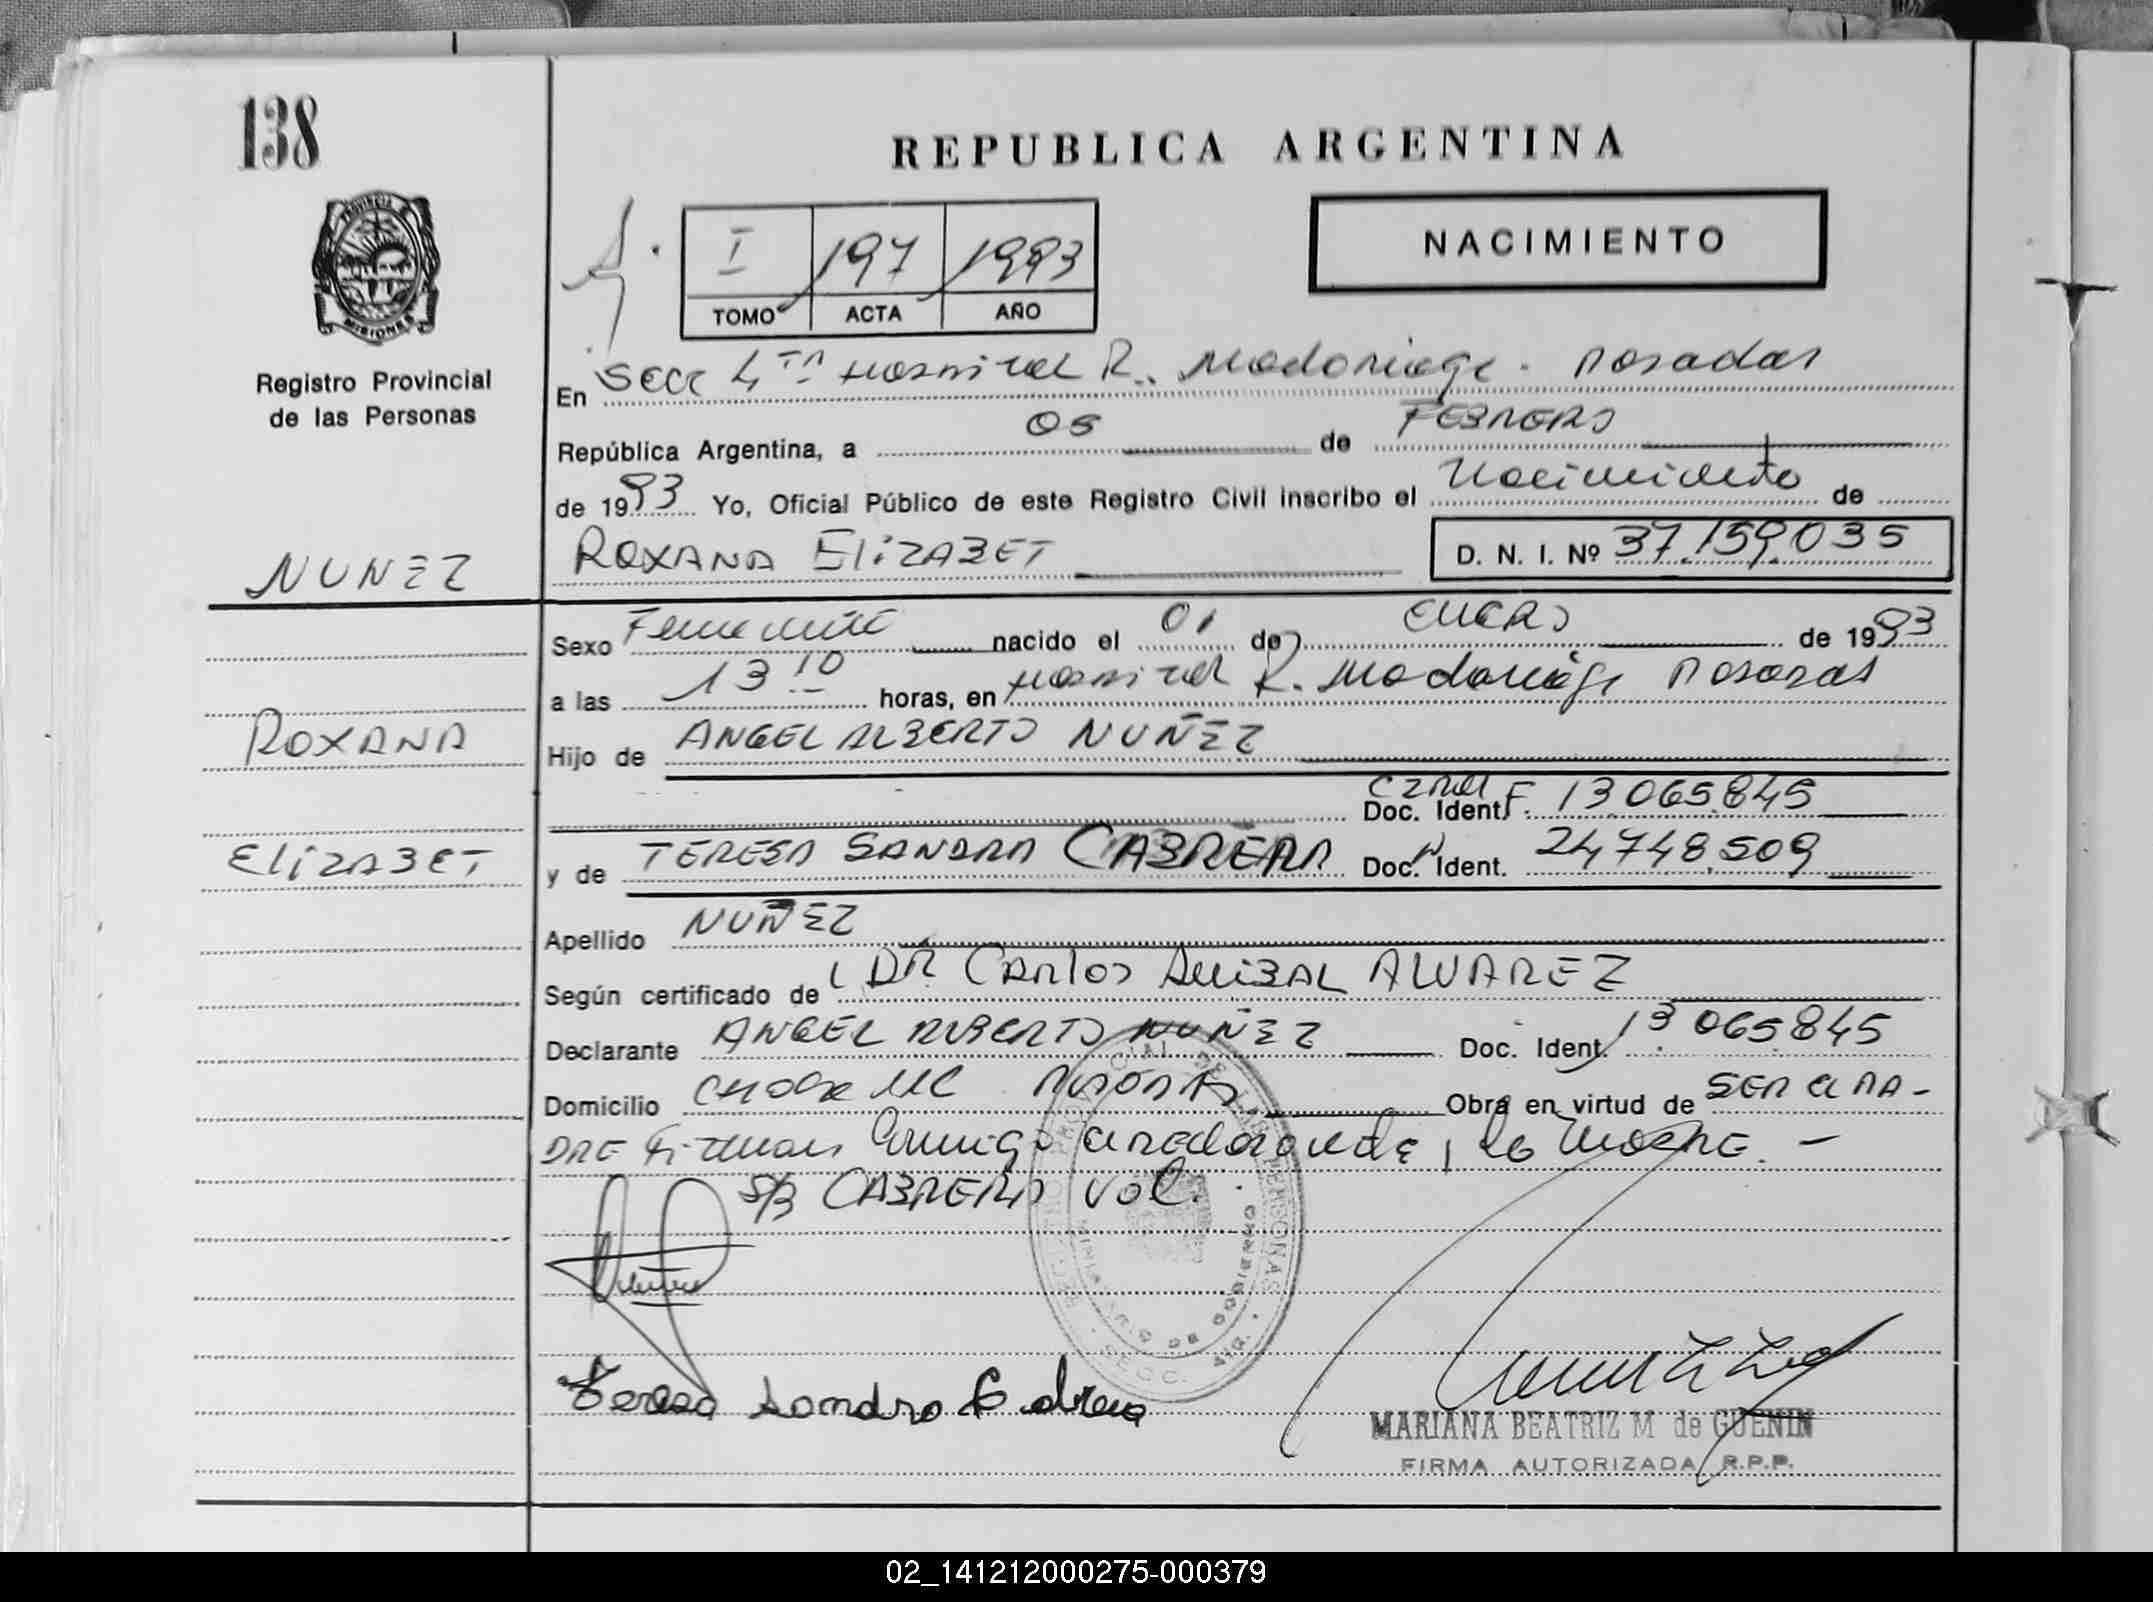 138
REPUBLICA ARGENTINA
PROVINCIA DE
MISIONES
I 197 1993
TOMO ACTA AÑO
NACIMIENTO
Registro Provincial
de las Personas
En Secc 4ta Hospital R. Madariaga - Posadas
República Argentina, a 05 de FEBRERO
de 1993 Yo, Oficial Público de este Registro Civil inscribo el Nacimiento de
NUNEZ
ROXANA ELIZABET D. N. I. Nº 37.159.035
Sexo Femenino nacido el 01 de ENERO de 1993
a las 13 10 horas, en Hospital R. Madariaga Posadas
ROXANA
Hijo de ANGEL ALBERTO NUÑEZ
Doc. Ident. 13 065.845
ELIZABET
y de TERESA SANDRA CABRERA Doc. Ident. 24.748.509
Apellido NUÑEZ
Según certificado de DR CARLOS ANIBAL ALVAREZ
Declarante ANGEL ALBERTO NUÑEZ Doc. Ident. 13 065.845
Domicilio POSADAS Obra en virtud de SER EL PA-
DRE Firman Conmigo la MADRE. -
S/B CABRERA VOL.
REGISTRO PROVINCIAL DE LAS PERSONAS
MINISTERIO DE GOBIERNO
SECC. 4ta.
Teresa Sandra Cabrera
MARIANA BEATRIZ M de GUENIN
FIRMA AUTORIZADA R.P.P.
02_141212000275-000379